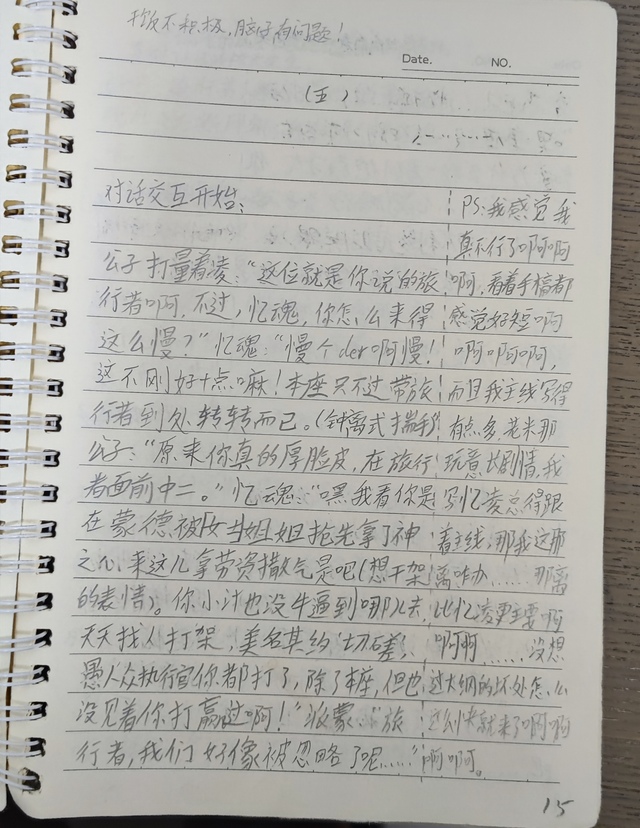 干饭不积极,脑子有问题!
Date. NO.
(五)
对话交互开始:
公子打量着凌:“这位就是你说的旅
行者啊,不过,忆魂,你怎么来得
这么慢?”忆魂:“慢个der啊慢!
这不刚好十点嘛!本座只不过带旅
行者到处转转而已。(钟离式揣手)
公子:“原来你真的厚脸皮,在旅行
者面前中二。”忆魂:“嘿我看你是
在蒙德被女当姐姐抢先拿了神
之心,来这儿拿劳资撒气是吧(想干架
的表情)。你小汁也没牛逼到哪儿去,
天天找人打架,美名其约‘切磋’.
愚人众执行官你都打了,除了本座,但也
没见着你打赢过啊!”派蒙:“旅
行者,我们好像被忽略了呢……”
PS:我感觉我
真不行了啊啊
啊,看着手稿都
感觉好短啊
啊啊啊啊,
而且我主线写得
有点多,花米那
玩意长剧情,我
写忆凌总得跟
着主线,那我这那
离咋办……那离
比忆凌更主要啊
啊啊……没想
过大纲的坏处怎么
这么快就来了啊啊
啊啊。
15